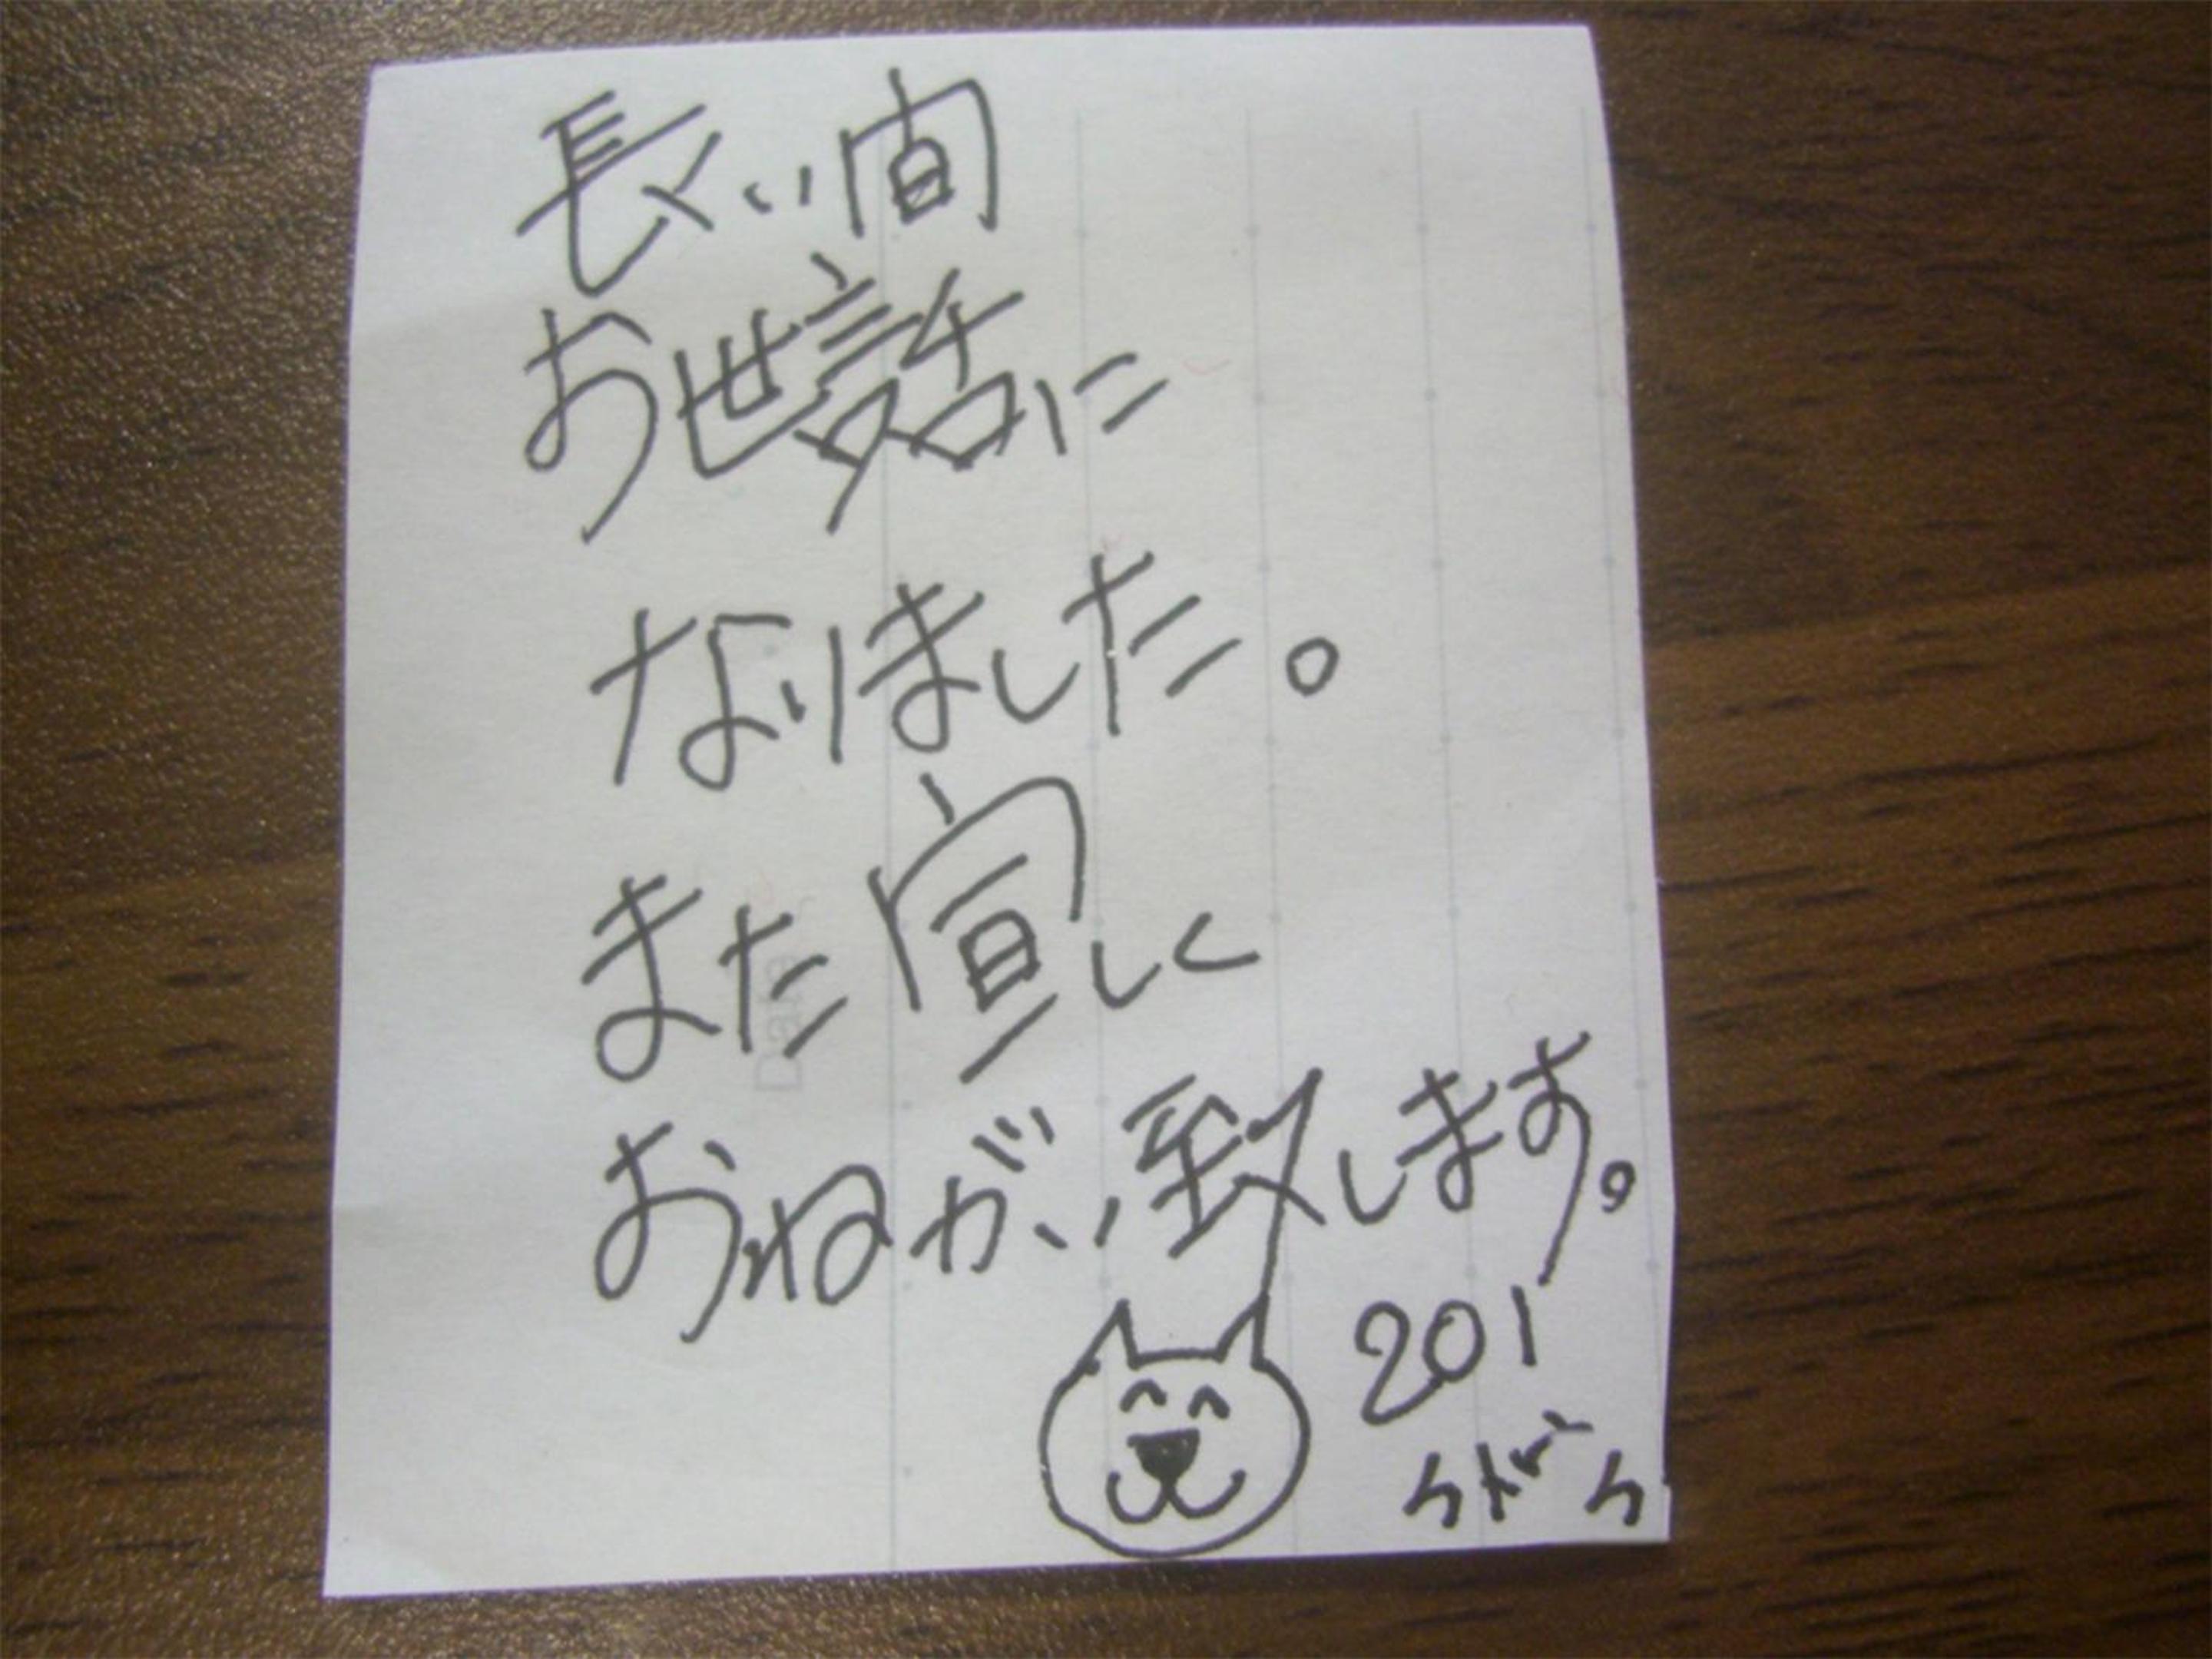 長い間
お世話に
なりました。
また宣しく
おねがい致します。
201